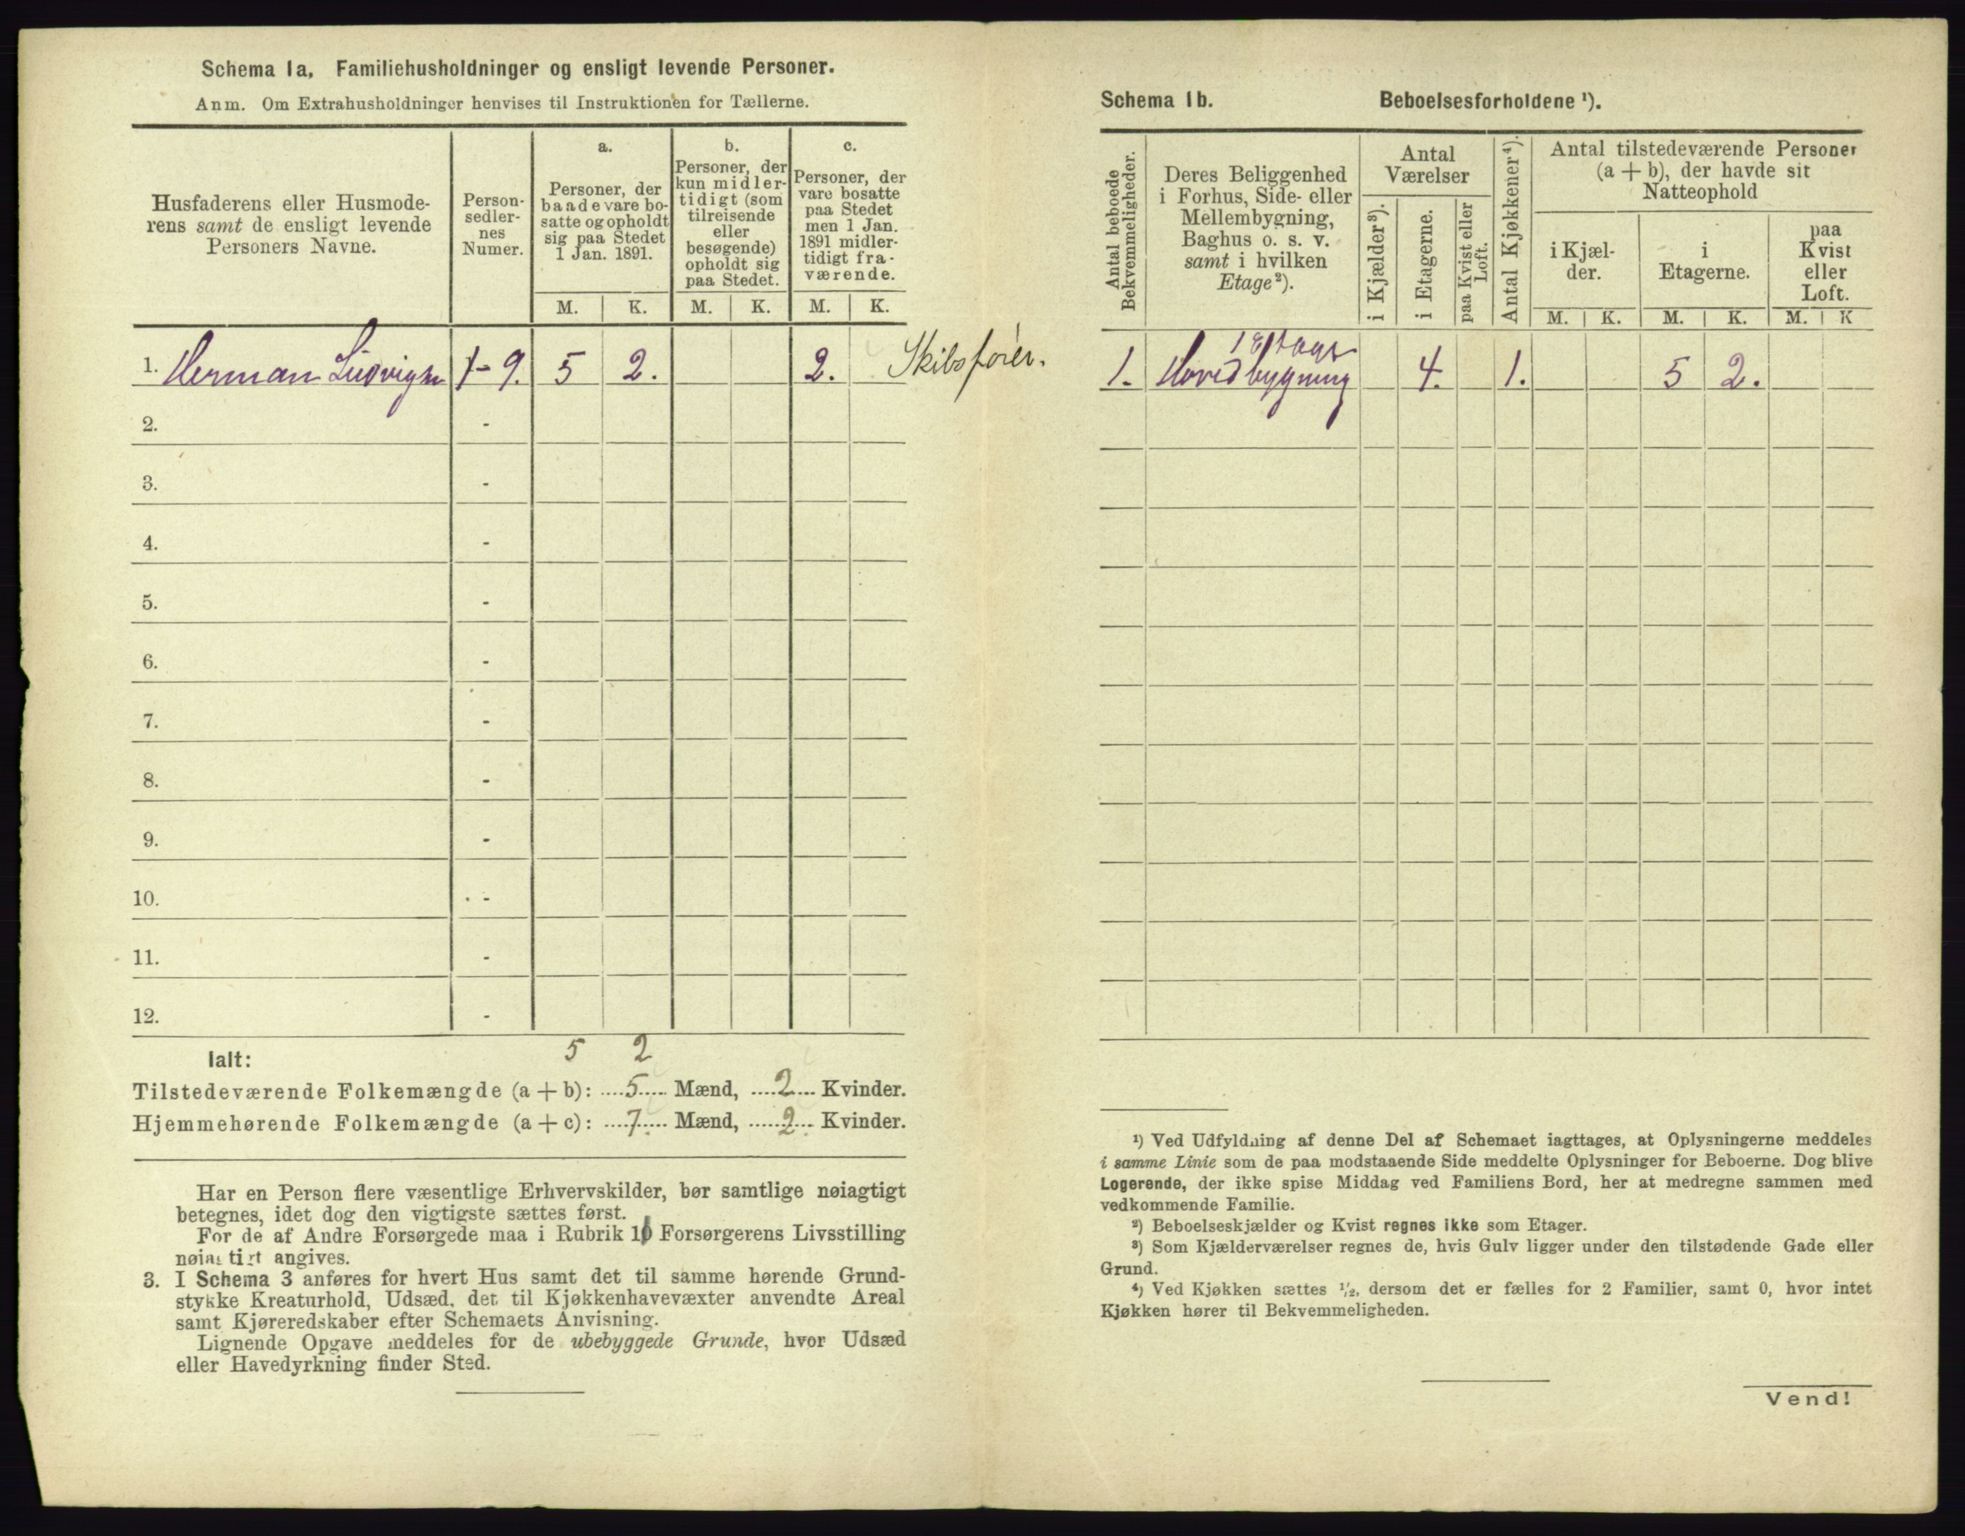 Schema 1a, Familiehusholdninger og ensligt levende Personer.
Anm. Om Extrahusholdninger henvises til Instruktionen for Tællerne.
Husfaderens eller Husmode-
rens samt de ensligt levende
Personers Navne.
Person-
sedler-
nes
Numer.
a.
Personer, der
baade vare bo-
satte og opholdt
sig paa Stedet
1 Jan. 1891.
b.
Personer, der
kun midler-
tidigt (som
tilreisende
eller
besøgende)
opholdt sig
paa Stedet.
c.
Personer, der
vare bosatte
paa Stedet
men 1 Jan.
1891 midler-
tidigt fra-
værende.
M. K. M. K. M. K.
1. Herman Ludvigsen 1-9. 5 2. 2. Skibsfører.
2. -
3. -
4. -
5. -
6. -
7. -
8. -
9. -
10. -
11. -
12. -
Ialt: 5 2
Tilstedeværende Folkemængde (a + b): 5 Mænd, 2 Kvinder.
Hjemmehørende Folkemængde (a + c): 7 Mænd, 2 Kvinder.
Har en Person flere væsentlige Erhvervskilder, bør samtlige nøiagtigt
betegnes, idet dog den vigtigste sættes først.
For de af Andre Forsørgede maa i Rubrik 16 Forsørgerens Livsstilling
nøiagtigt angives.
3. I Schema 3 anføres for hvert Hus samt det til samme hørende Grund-
stykke Kreaturhold, Udsæd, det til Kjøkkenhavevæxter anvendte Areal
samt Kjøreredskaber efter Schemaets Anvisning.
Lignende Opgave meddeles for de ubebyggede Grunde, hvor Udsæd
eller Havedyrkning finder Sted.
Schema 1b. Beboelsesforholdene ¹).
Antal beboede
Bekvemmeligheder.
Deres Beliggenhed
i Forhus, Side- eller
Mellembygning,
Baghus o. s. v.
samt i hvilken
Etage²).
Antal
Værelser
i Kjælder³).
i Etagerne.
paa Kvist eller
Loft.
Antal Kjøkkener⁴).
Antal tilstedeværende Personer
(a + b), der havde sit
Natteophold
i Kjæl-
der.
i
Etagerne.
paa
Kvist
eller
Loft.
M. K. M. K. M. K
1 Etage
1. Hovedbygning 4. 1. 5 2.
¹) Ved Udfyldning af denne Del af Schemaet iagttages, at Oplysningerne meddeles
i samme Linie som de paa modstaaende Side meddelte Oplysninger for Beboerne. Dog blive
Logerende, der ikke spise Middag ved Familiens Bord, her at medregne sammen med
vedkommende Familie.
²) Beboelseskjælder og Kvist regnes ikke som Etager.
³) Som Kjælderværelser regnes de, hvis Gulv ligger under den tilstødende Gade eller
Grund.
⁴) Ved Kjøkken sættes ¹/₂, dersom det er fælles for 2 Familier, samt 0, hvor intet
Kjøkken hører til Bekvemmeligheden.
Vend!